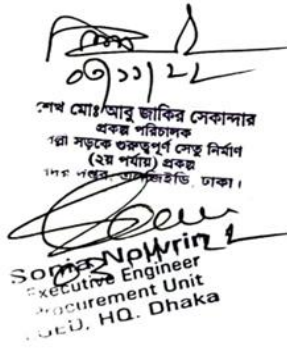 ০৭/১১/২২
শেখ মোঃ আবু জাকির সেকান্দার
প্রকল্প পরিচালক
পল্লী সড়কে গুরুত্বপূর্ণ সেতু নির্মাণ
(২য় পর্যায়) প্রকল্প
সদর দপ্তর, এলজিইডি, ঢাকা।
Sonia Nowrin
Executive Engineer
Procurement Unit
LGED, HQ. Dhaka